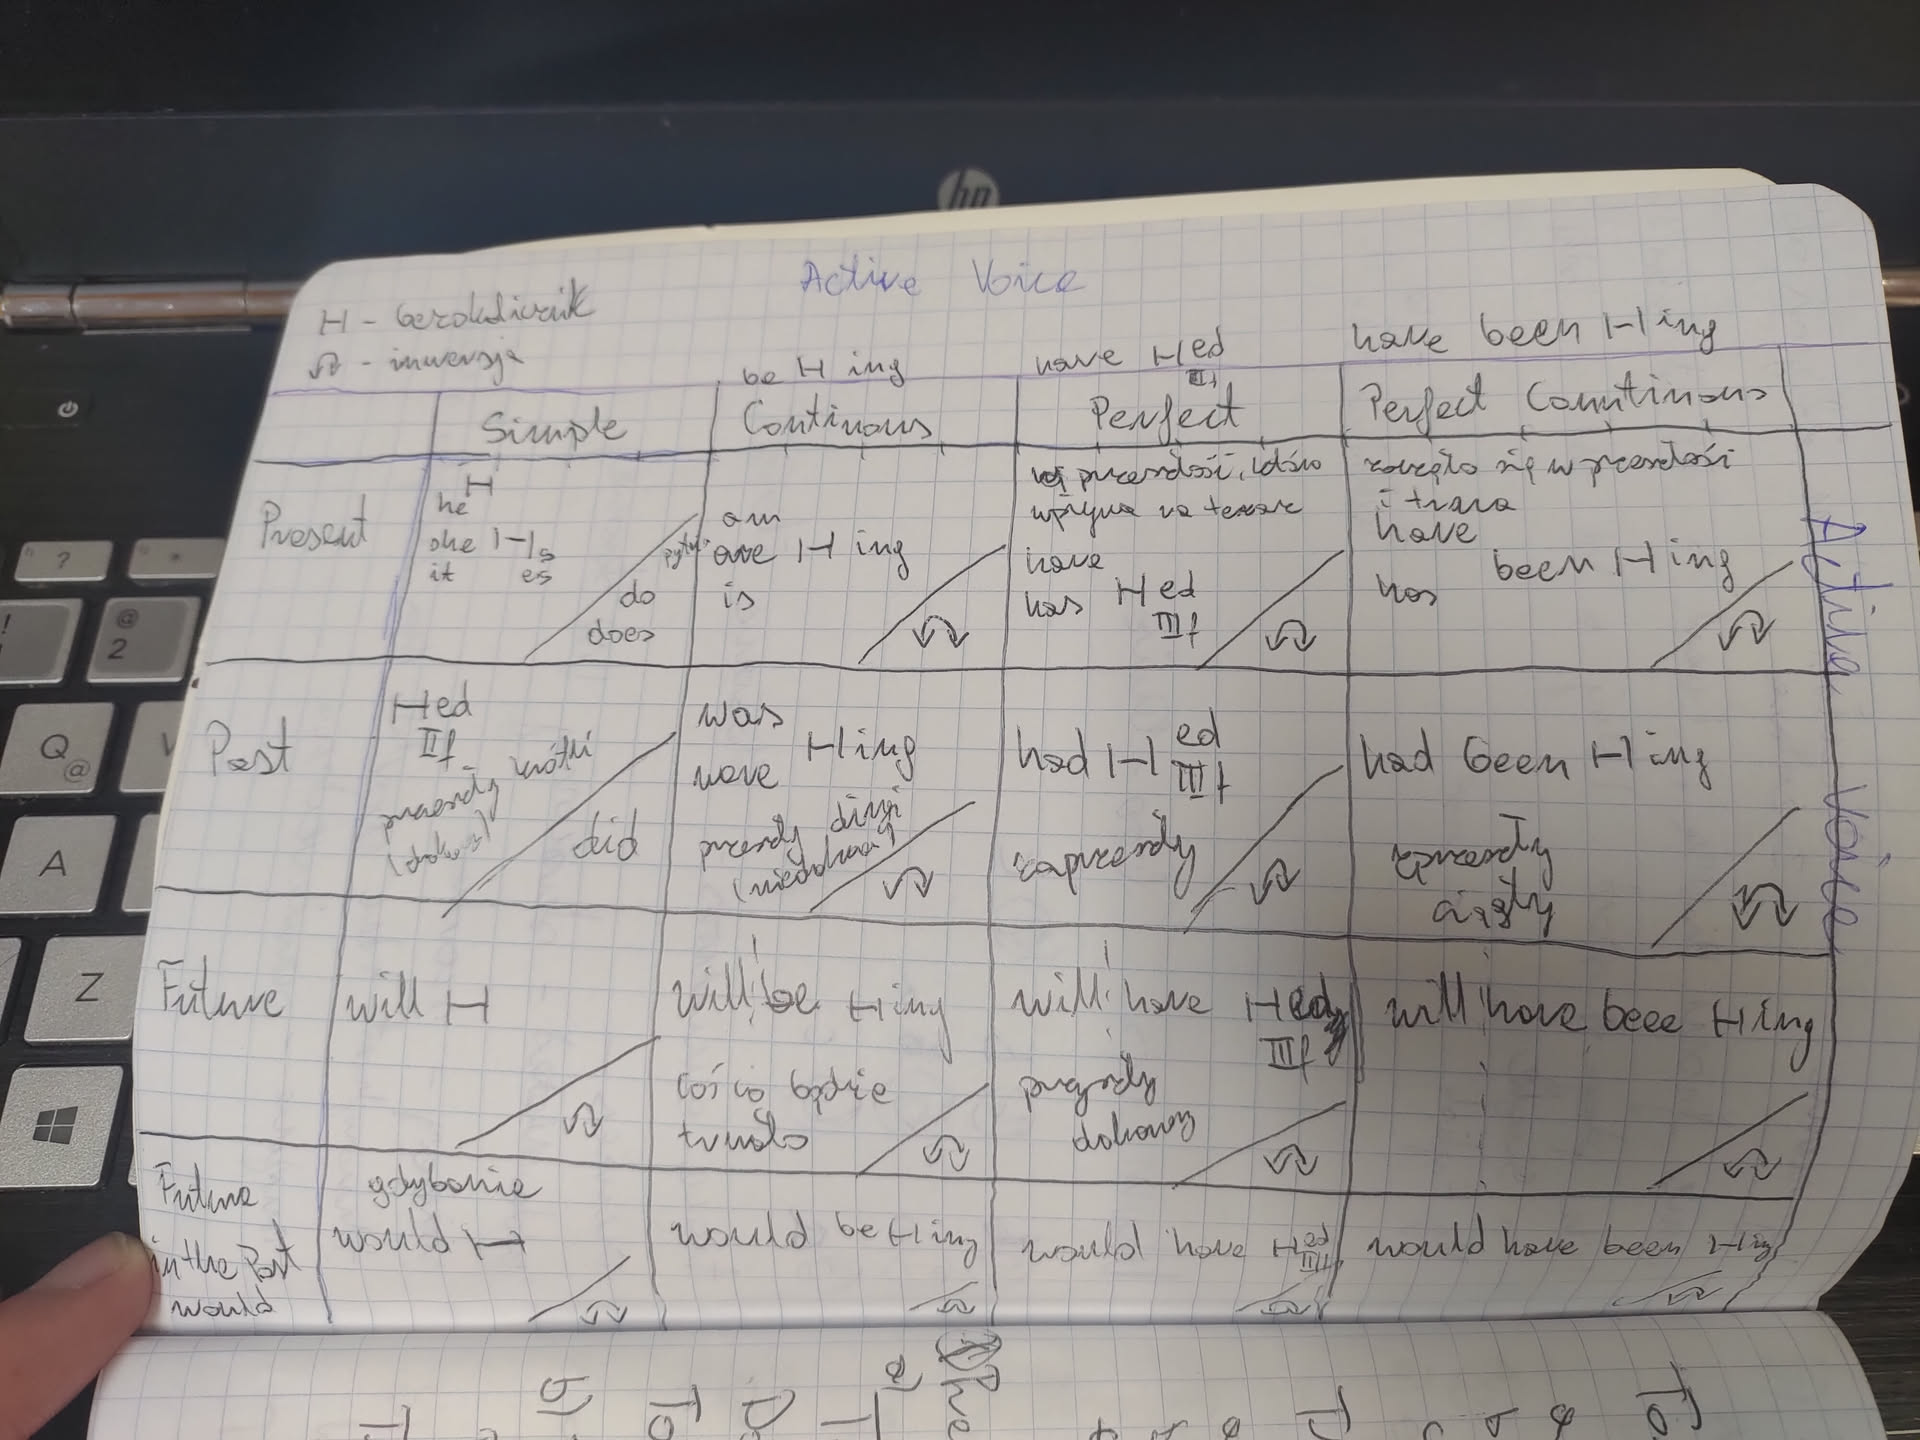 hp
Active Voice
H - bezokolicznik
- inwersja
be H ing
have H ed
III f
have been H ing
Simple
Continuous
Perfect
Perfect Conntinous
Present
H
he
she H s
it es
do
does
am
are H ing
is
przeszłości, która
wpływa na teraz
have
has H ed
III f
zaczęło się w przeszłości
i trwa
have
has been H ing
Past
H ed
II f
przeszły krótki
did
was
were H ing
przeszły długi
had H ed
III f
zaprzeszły
had been H ing
zaprzeszły
ciągły
Future
will H
will be H ing
coś co będzie
trwało
will have H ed
III f
przyszły
dokonany
will have beee H ing
Future
in the Past
would
gdybanie
would H
would be H ing
would have H ed
III f
would have been H ing
Active Voice
?
!
@
2
Q
@
A
Z